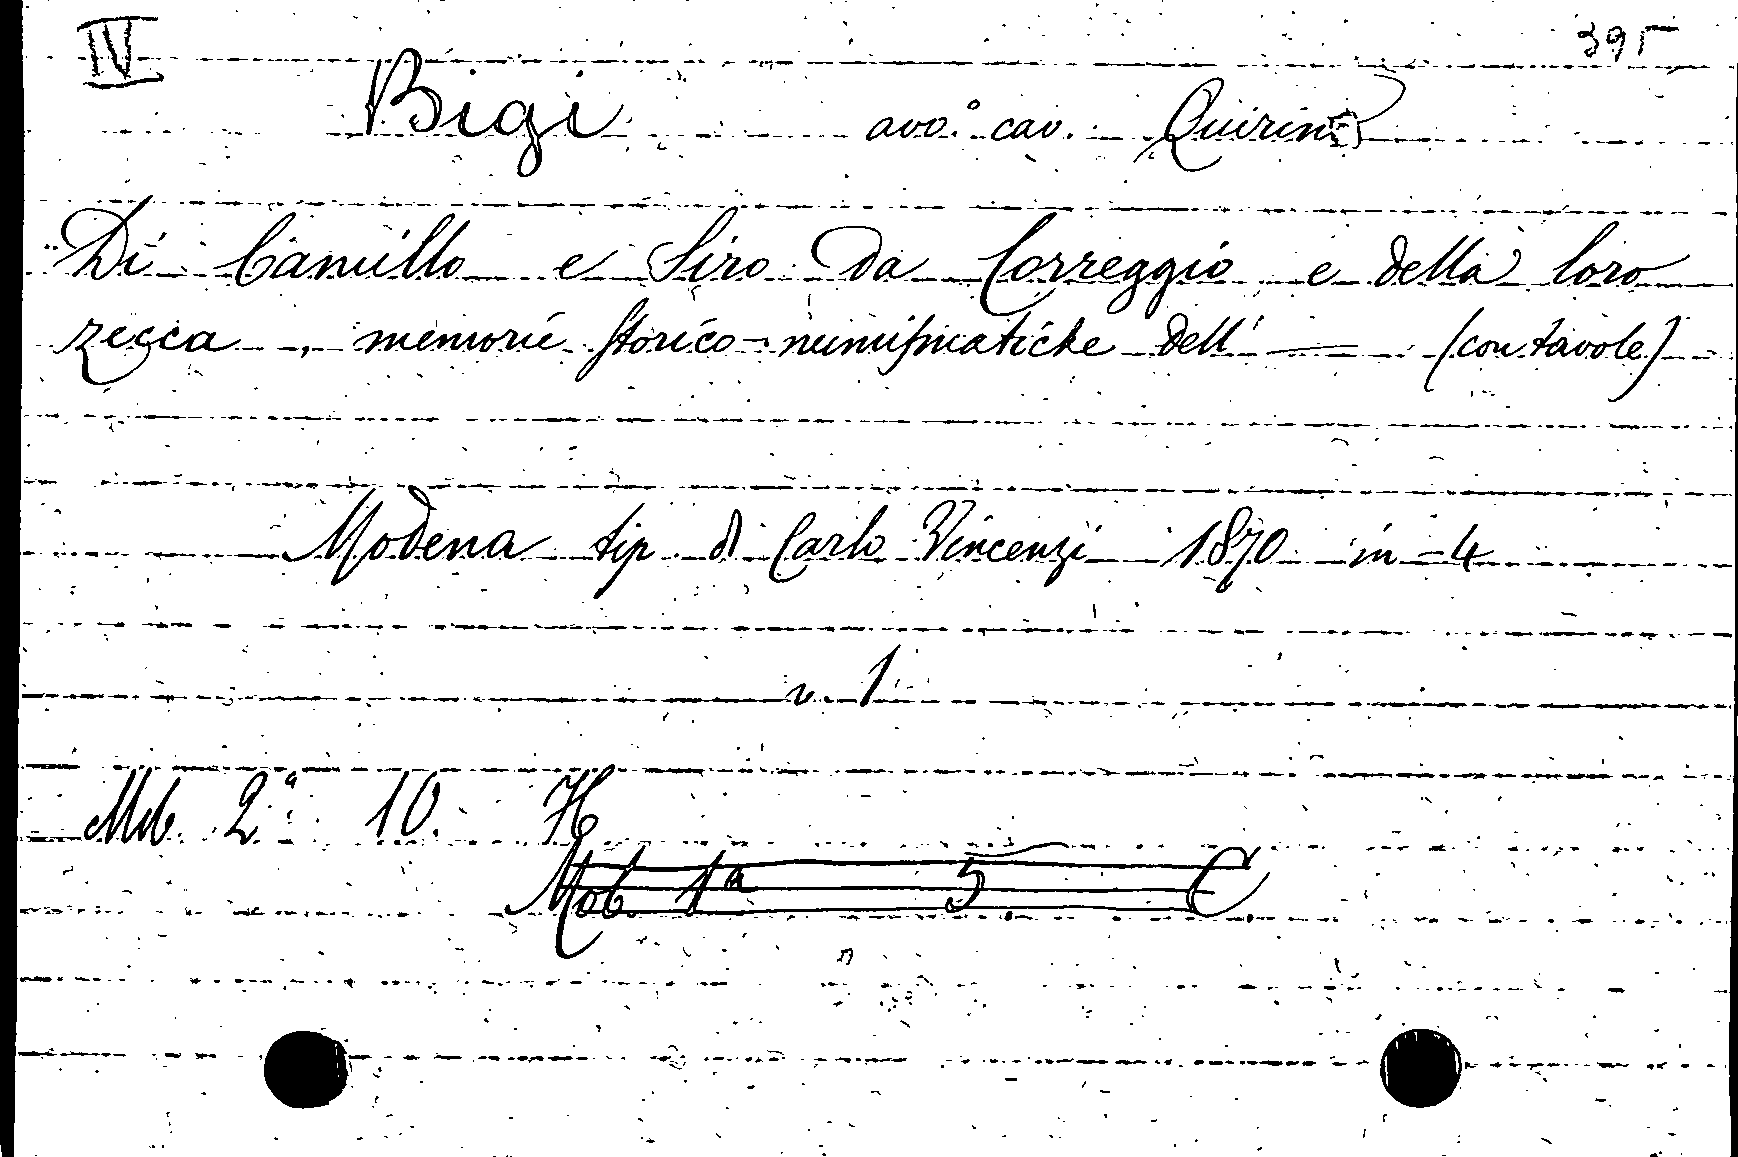 IV 395
Bigi avv.° cav. Quirino
Di Camillo e Siro Da Correggio e della loro
zecca, memorie storico-numismatiche dell' — (con tavole)
Modena tip. di Carlo Vincenzi 1870 in-4
v. 1
Mob. 2ª 10. H
Mob. 1ª 5. C.